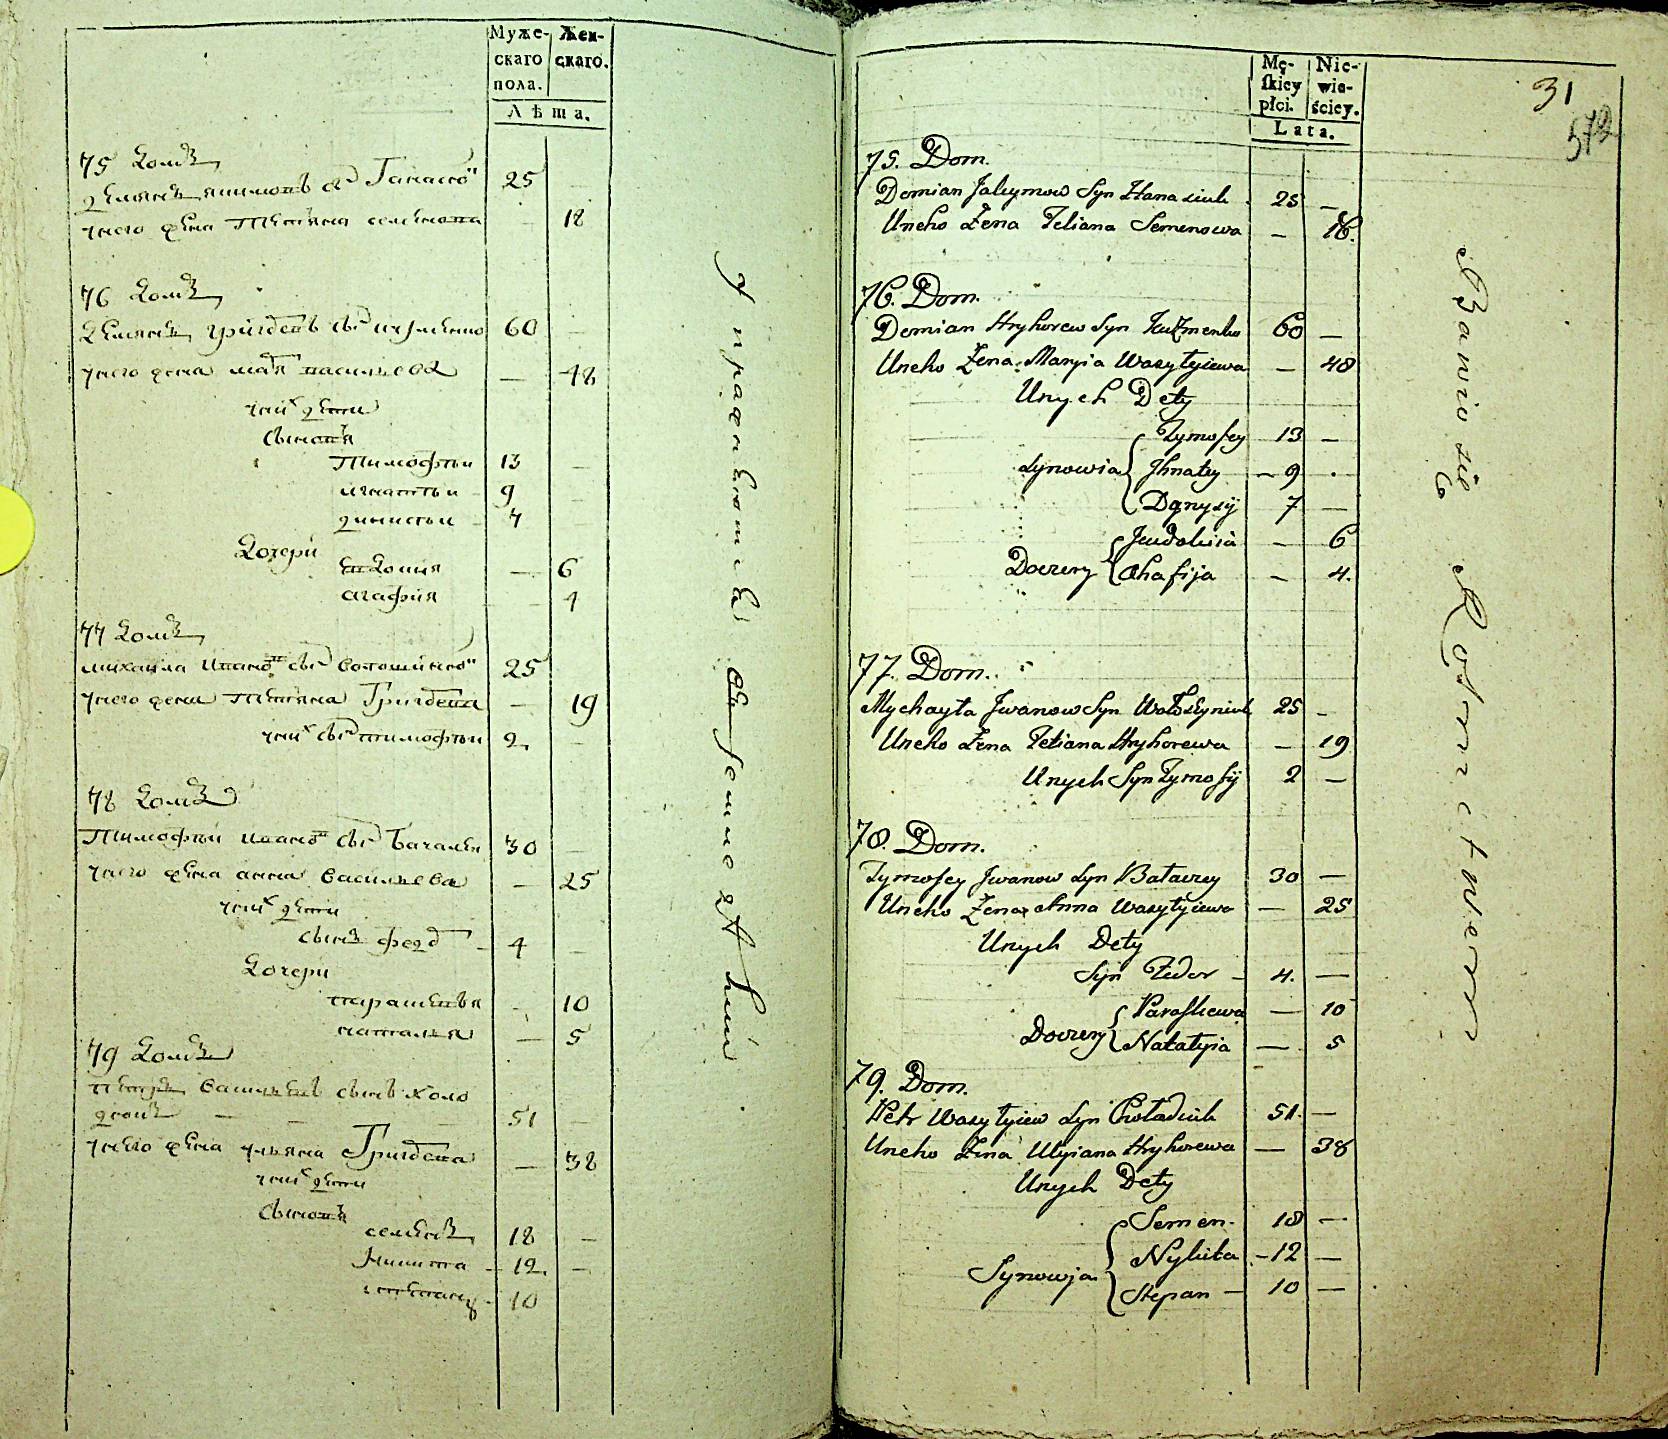 Муже-
скаго
пола.
Жен-
скаго.
Лѣта.
75 Домъ
Демянъ Якимовъ сы
25
18
у него жена Тетяна Семенова
76 Домъ
Демянъ Григоревъ сы
60
у него жена Марья Васильева
48
у них дети
Сыновя
Тимофѣи 13
Игнатѣи 9
Динисѣи 7
Дочери
Евдокия 6
Агафия 4
77 Домъ
Михаила Ивано сы
25
у него жена Тетяна Григорева
19
у них сы Тимофѣи 2
78 Домъ
Тимофѣи Ивано сы
30
у него жена Анна Васильева
25
у них дети
сынъ Федо 4
Дочери
Парасковя 10
Наталья 5
79 Домъ
Петръ Васильевъ сынъ Холо
дюкъ 51
у него жена Ульяна Григорева
38
у них дети
Сыновя
Семенъ 18
Никита 12
Степанъ 10
упражняются в земледѣлии
Mę-
skiey
płci.
Nie-
wie-
ściey.
Lata.
31
572
75. Dom.
Demian Jakymow Syn Hanasiuk 25 —
Uneho Żena Tetiana Semenowa — 18.
76. Dom.
Demian Hryhorew Syn Kuzmenko 60 —
Uneho Żena Maryia Wasylyiewa — 48
Unych Dety
Synowia
Tymofey 13 —
Jhnaty — 9
Denysij 7 —
Doczery
Jewdokija — 6
Ahafija — 4.
77. Dom.
Mychayła Jwanow Syn Wołoszyniuk 25 —
Uneho Żena Tetiana Hryhorewa — 19
Unych Syn Tymofij 2 —
78. Dom.
Tymofey Jwanow Syn 30 —
Uneho Żena Anna Wasylyiewa — 25
Unych Dety
Syn Fedor — 4. —
Doczery
Paraskewa — 10
Natalyia — 5
79. Dom.
Petr Wasylyiew Syn Chołodiuk 51. —
Uneho Żena Ulyiana Hryhorewa — 38
Unych Dety
Synowja
Semen. 18 —
Nykita — 12 —
Stepan — 10 —
Bawio się Rolnictwem